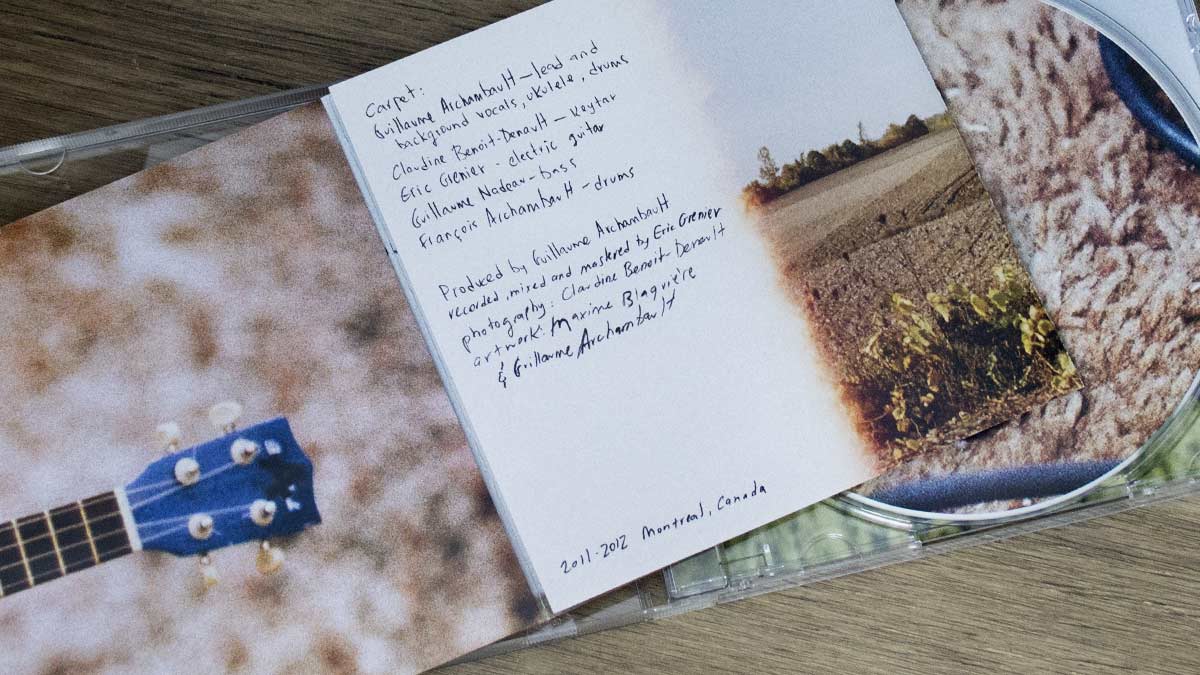 Carpet:
Guillaume Archambault - lead and
background vocals, ukulele, drums
Claudine Benoit-Denault - keytar
Eric Grenier - electric guitar
Guillaume Nadeau - bass
François Archambault - drums
Produced by Guillaume Archambault
recorded, mixed and mastered by Eric Grenier
photography: Claudine Benoit-Denault
artwork: Maxime Blaquière
& Guillaume Archambault
2011-2012 Montreal, Canada